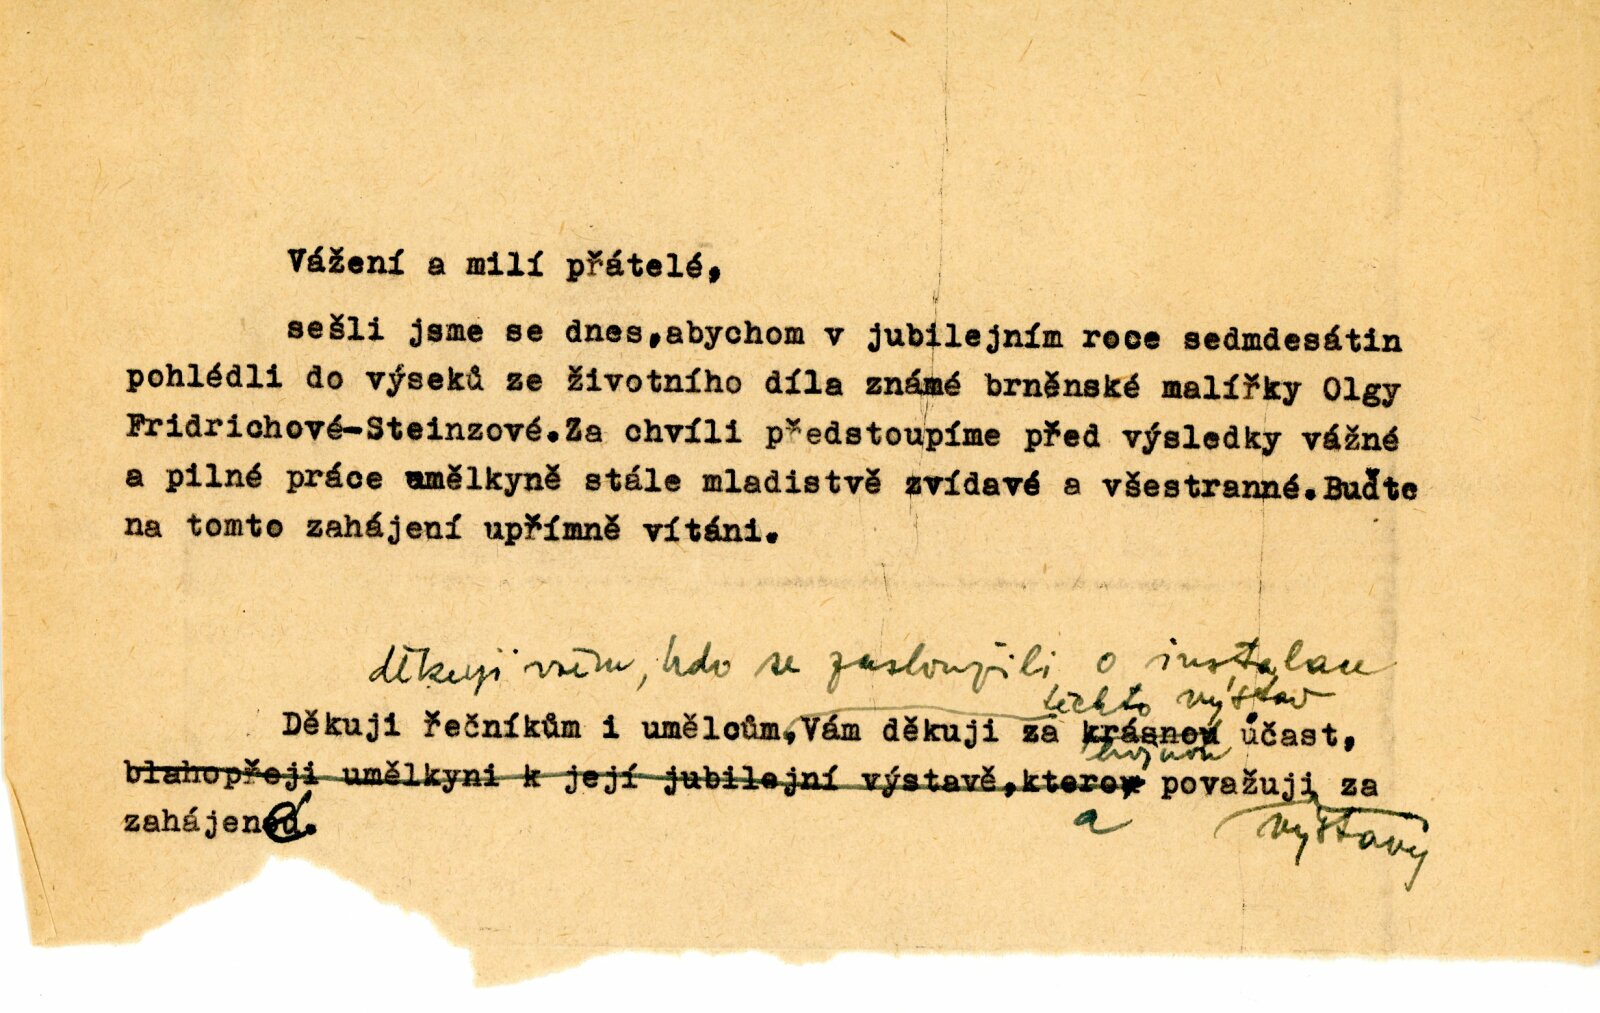 Vážení a milí přátelé,
sešli jsme se dnes,abychom v jubilejním roce sedmdesátin
pohlédli do výseků ze životního díla známé brněnské malířky Olgy
Fridrichové-Steinzové.Za chvíli předstoupíme před výsledky vážné
a pilné práce umělkyně stále mladistvě zvídavé a všestranné.Buďte
na tomto zahájení upřímně vítáni.
děkuji všem, kdo se zasloužili o instalace
těchto výstav
Děkuji řečníkům i umělcům,Vám děkuji za krásnou účast,
hojnou
blahopřeji umělkyni k její jubilejní výstavě,kterou považuji za
a výstavy
zahájené.